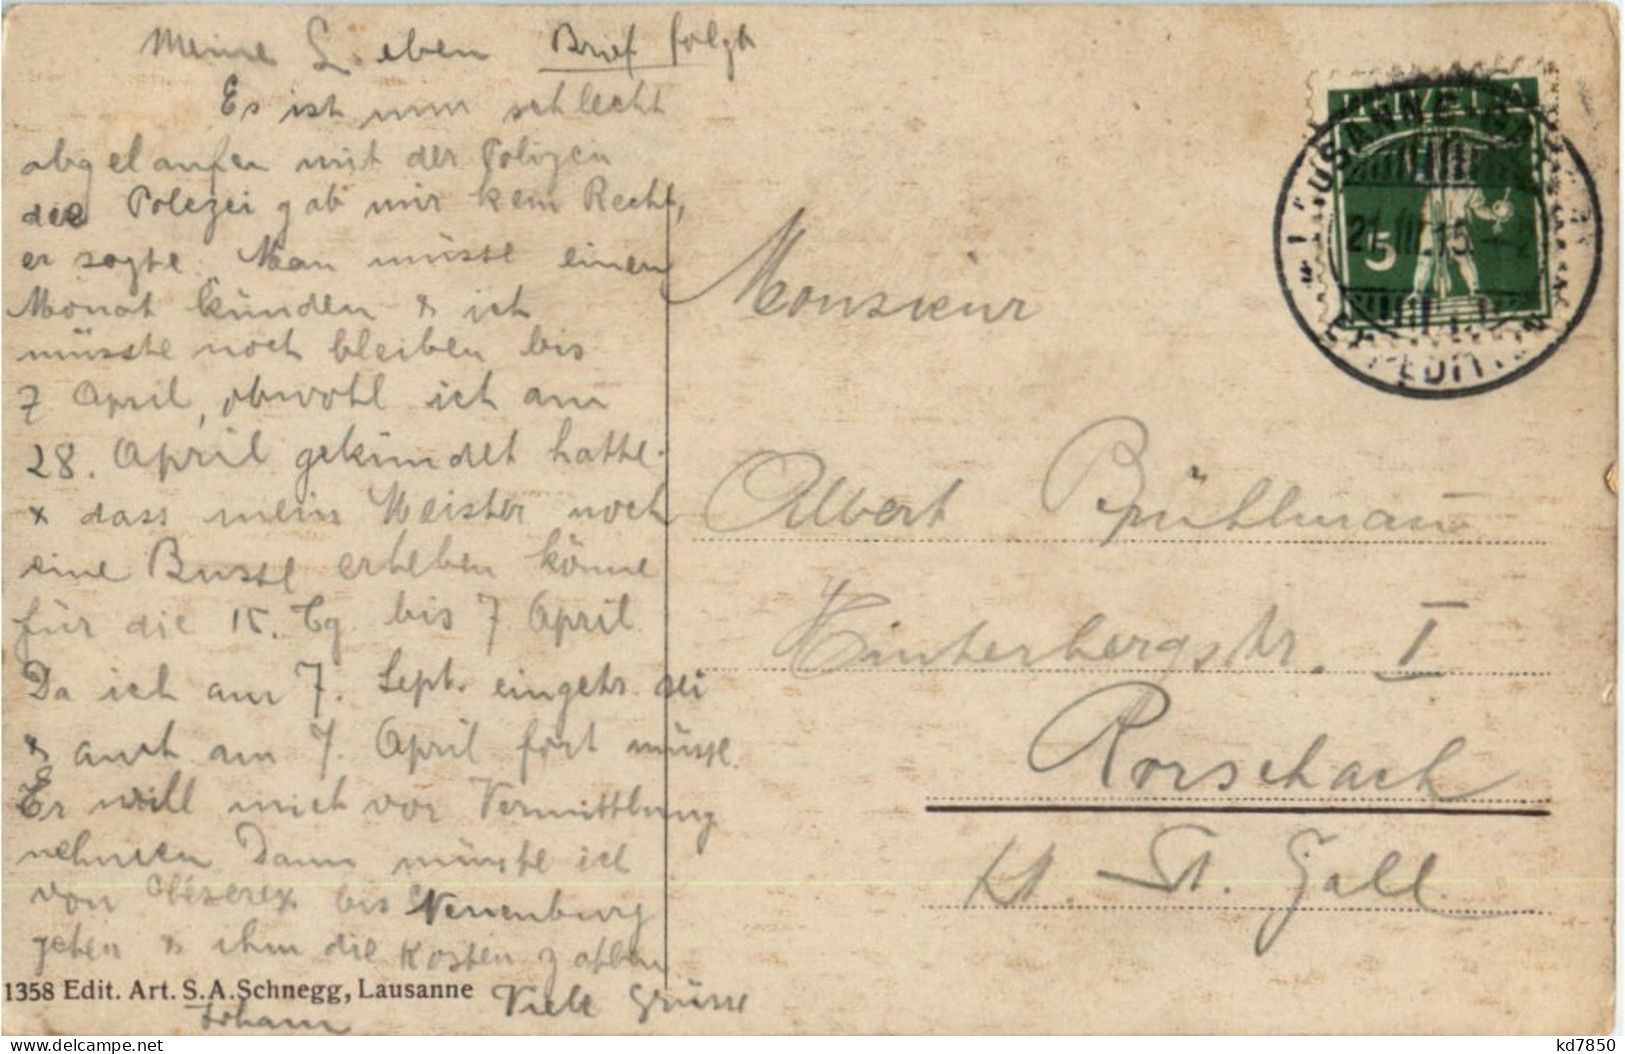 Meine L. eben Brief folgt
Es ist nun schlecht
abgelaufen mit der Polizen
die Polezei gab mir kein Recht,
er sagte. Man müsse einen
Monat künden & ich
müsste noch bleiben bis
7 April, obwohl ich am
28. April gekündet hatte.
x dass mein Meister noch
eine Busse erheben könne
für die 15. Tg. bis 7 April.
Da ich am 7. Sept. eingetr. sei
& auch am 7. April fort müsse.
Er will mich vor Vermittlung
nehmen Dann müsste ich
von bis Neuenburg
gehen & ihm die Kosten zahlen
Viele Grüsse
Johann
1358 Edit. Art. S.A. Schnegg, Lausanne
HELVETIA
5
LAUSANNE
21.III.15
EXPEDITION
Monsieur
Albert Brühlmann
Hinterbergstr. I
Rorschach
Kt. St. Gall.
kd7850